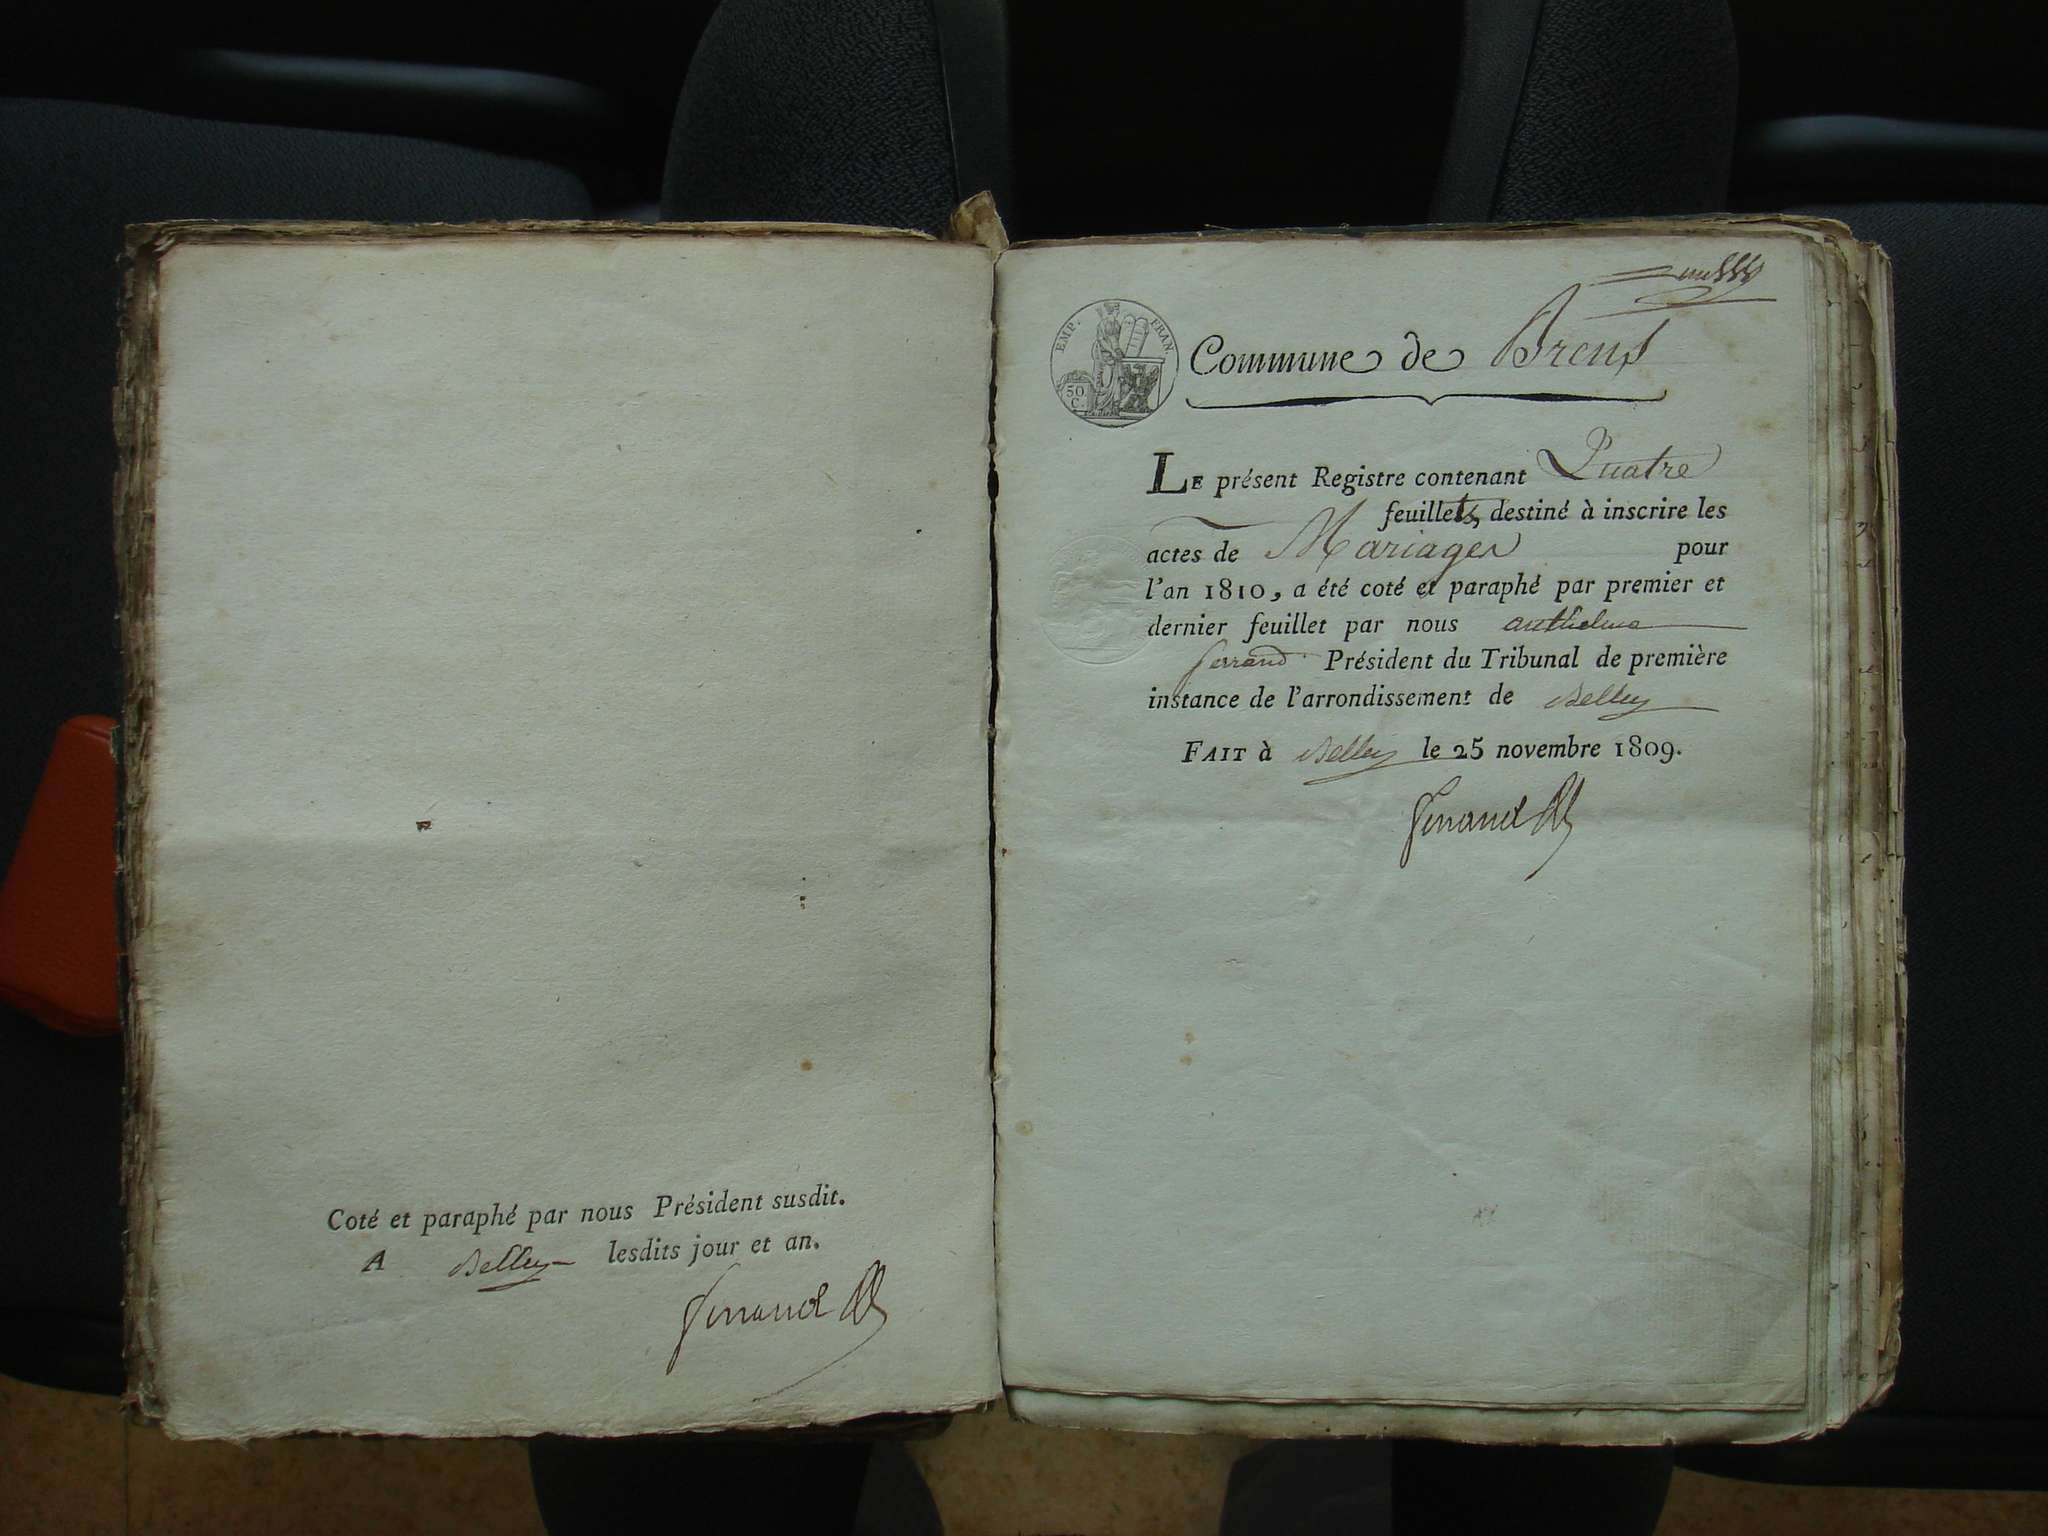 Coté et paraphé par nous Président susdit.
A Belley lesdits jour et an.
ferrand
EMP. FRAN
50
C.
Commune de Brens
LE présent Registre contenant Quatre
feuillets, destiné à inscrire les
actes de Mariages pour
l'an 1810, a été coté et paraphé par premier et
dernier feuillet par nous anthelme
ferrand Président du Tribunal de première
instance de l'arrondissement de Belley
FAIT à Belley le 25 novembre 1809.
ferrand